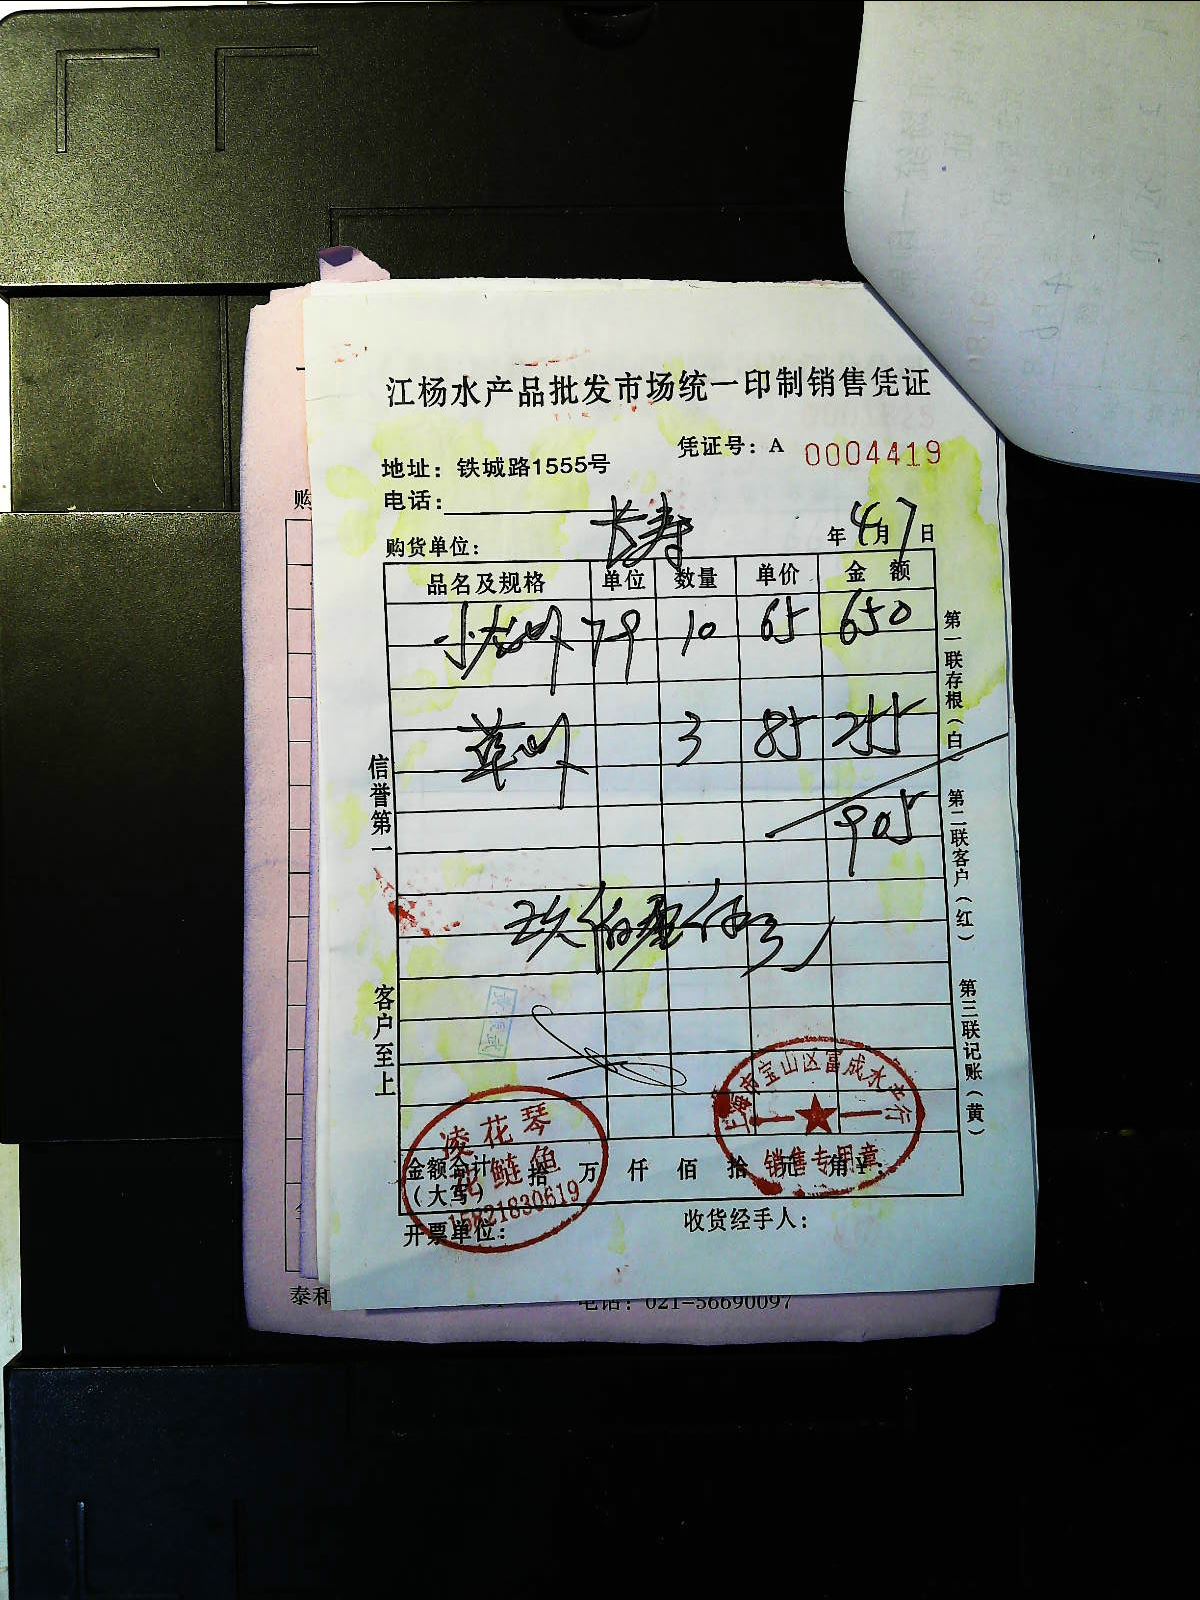 江杨水产品批发市场统一印制销售凭证
凭证号：A 0004419
地址：铁城路1555号
电话：
购货单位： 长寿 年 4月 7日
品名及规格 单位 数量 单价 金 额
小龙虾 79 10 65 650
草虾 3 85 255
905
玖佰零伍元
信誉第一
客户至上
第一联存根（白）
第二联客户（红）
第三联记账（黄）
凌花琴
花鲢鱼
15821830619
上海市宝山区富成水产行
销售专用章
金额合计（大写） 拾 万 仟 佰 拾 元 角 ¥：
开票单位：
收货经手人：
购
泰和
电话：021-56690097